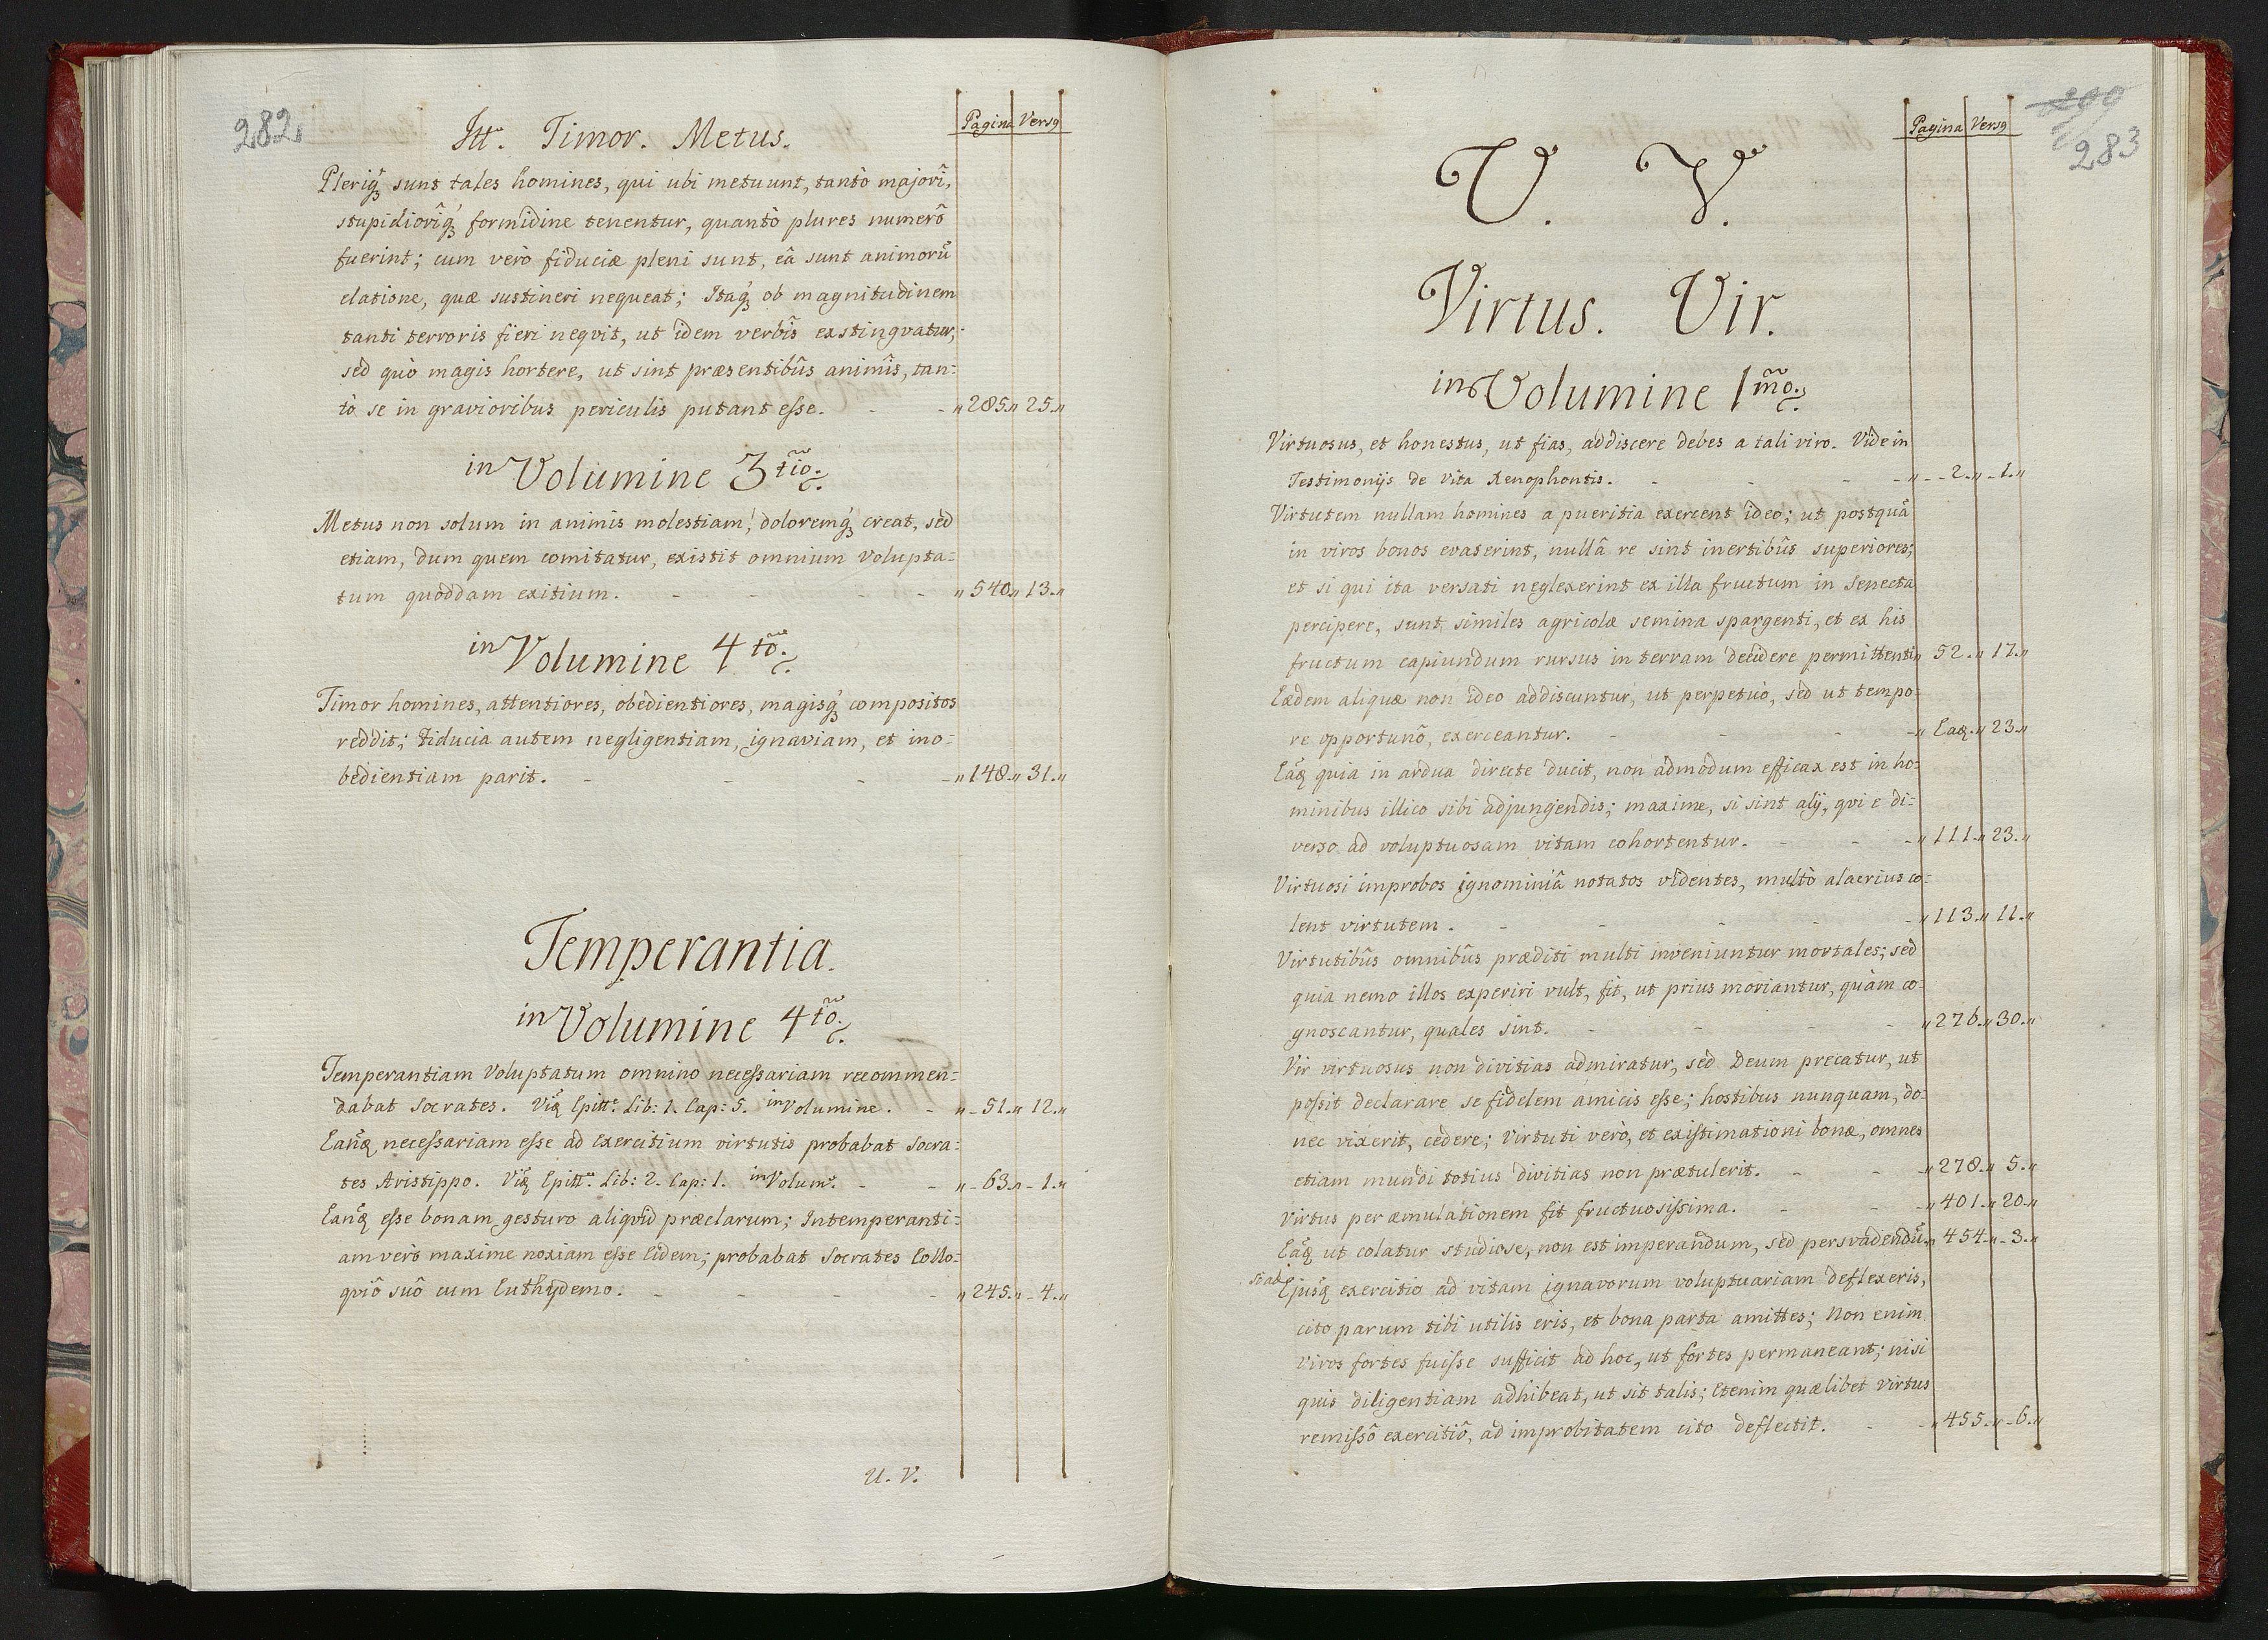 282.
Itt. Timor. Metus.
Pagina Versꝯ
Pleriqꝫ sunt tales homines, qui ubi metuunt, tantò majorî,
stupidiorîqꝫ formidine tenentur, quantò plures numerô
fuerint; cum verò fiduciæ pleni sunt, eâ sunt animorũ
elatione, quæ sustineri nequeat; Itaqꝫ ob magnitudinem
tanti terroris fieri neqvit, ut idem verbîs exstingvatur,
sed quò magis hortere, ut sint præsentibûs animîs, tan:
tò se in gravioribus periculis putant eſse. - - „285.„ 25.„
in Volumine 3tio.
Metus non solum in animis molestiam, doloremqꝫ creat, sed
etiam, dum quem comitatur, existit omnium volupta:
tum quoddam exitium. - - - - „540.„ 13.„
in Volumine 4to.
Timor homines, attentiores, obedientiores, magisqꝫ compositos
reddit; fiducia autem negligentiam, ignaviam, et ino:
bedientiam parit. - - - - „148.„ 31.„
Temperantia.
in Volumine 4to.
Temperantiam Voluptatum omnino neceſsariam recommen:
dabat Socrates. Vidꝫ Epitt. Lib: 1. Cap: 5. in Volumine. - „-51.„ 12.„
Eandꝫ neceſsariam eſse ad exercitium virtutis probabat Socra:
tes Aristippo. Vidꝫ Epitt. Lib: 2. Cap: 1. in Volum. - - „-63.„-1.„
Eandꝫ eſse bonam gesturo aliqvid præclarum; Intemperanti:
am verò maxime noxiam eſse Eidem; probabat Socrates Collo:
quiô suô cum Euthydemo. - - - - „245.„-4.„
U. V.
200
283
Pagina Versꝯ
U. V.
Virtus. Vir.
in Volumine 1mo.
Virtuosus, et honestus, ut fias, addiscere debes a tali viro. Vide in
Testimonijs de Vita Xenophontis. - - - - „--2.„-1.„
Virtutem nullam homines a pueritia exercent ideo; ut postquã
in viros bonos evaserint, nullâ re sint inertibûs superiores;
et si qui ita versati neglexerint ex illa fructum in Senecta
percipere, sunt similes agricolæ semina spargenti, et ex his
fructum capiundum rursus in terram decidere permittenti„ 52.„ 17.„
Eædem aliquæ non ideo addiscuntur, ut perpetuò, sed ut tempo:
re opportunô, exerceantur. - - - -„ Eaꝫ.„ 23.„
Eadꝫ quia in ardua directe ducit, non admodum efficax est in ho:
minibus illico sibi adjungendis; maxime, si sint alij, qvi e di:
verso ad voluptuosam vitam cohortentur. - - -„111.„ 23.„
Virtuosi improbos ignominiâ notatos videntes, multò alacrius co:
lent virtutem. - - - - -„113.„ 11.„
Virtutibûs omnibûs præditi multi inveniuntur mortales; sed
quia nemo illos experiri vult, fit, ut prius moriantur, quàm co:
gnoscantur, quales sint. - - - - „276.„ 30.„
Vir virtuosus non divitias admiratur, sed Deum precatur, ut
poſsit declarare se fidelem amicis eſse; hostibus nunquam, do:
nec vixerit, cedere; Virtuti verò, et existimationi bonæ, omnes
etiam mundi totius divitias non prætulerit. - - -„278.„ 5.„
Virtus per æmulationem fit fructuosiſsima. - - -„401.„ 20.„
Eadꝫ ut colatur studiose, non est imperandum, sed persvadendũ„ 454.„-3.„
Si ab
Ejusdꝫ exercitio ad vitam ignavorum voluptuariam deflexeris,
cito parum tibi utilis eris, et bona parta amittes; Non enim
viros fortes fuiſse sufficit ad hoc, ut fortes permaneant; nisi
quis diligentiam adhibeat, ut sit talis; Etenim quælibet virtus
remiſsô exercitiô, ad improbitatem cito deflectit. - -„455.„-6.„